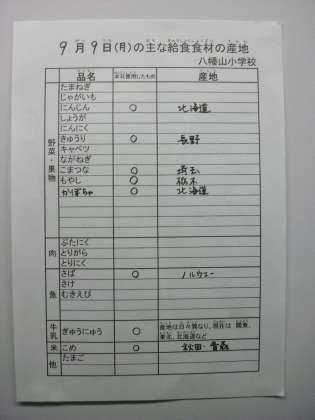 9月9日(月)の主な給食食材の産地
八幡山小学校
品名 本日使用したもの 産地
野菜・果物
たまねぎ
じゃがいも
にんじん ○ 北海道
しょうが
にんにく
きゅうり ○ 長野
キャベツ
ながねぎ
こまつな ○ 埼玉
もやし ○ 栃木
かぼちゃ ○ 北海道
肉
ぶたにく
とりがら
とりにく
魚
さば ○ ノルウェー
さけ
むきえび
牛乳 ぎゅうにゅう ○ 産地は日々異なり、現在は 関東、
東北、北海道など
米 こめ ○ 秋田・青森
他 たまご